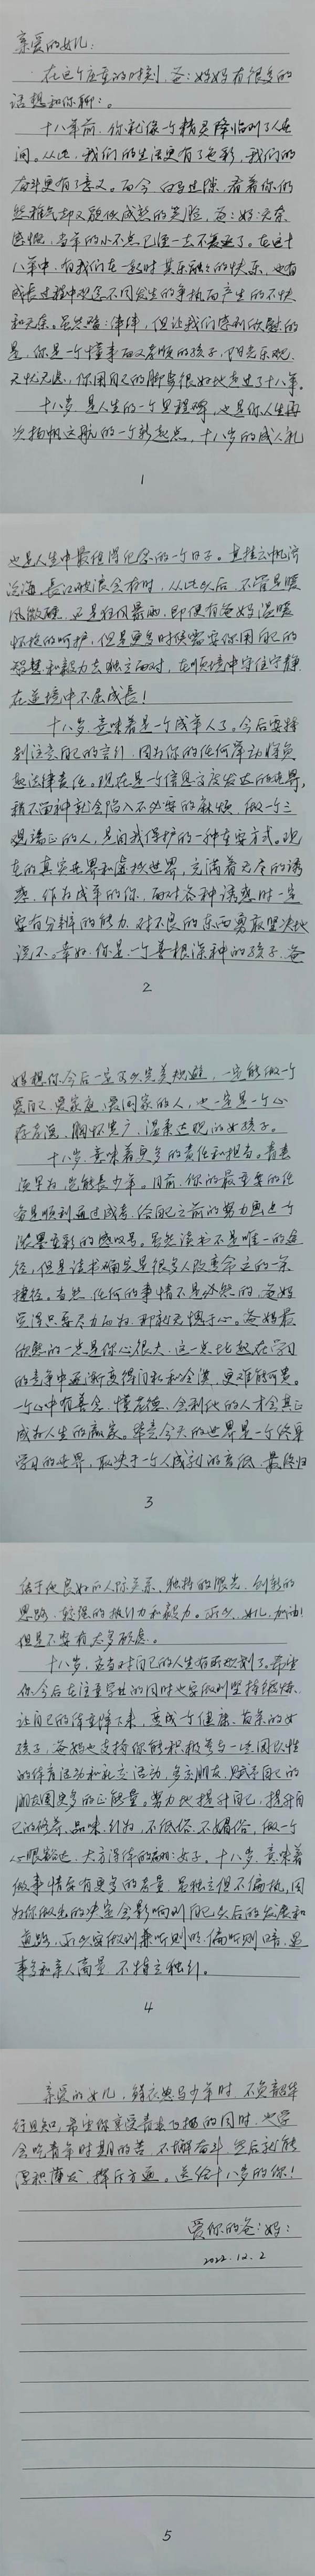 亲爱的女儿:
在这个庄重的时刻,爸:妈妈有很多的
话想和你聊:。
十八年前,你就像一个精灵降临到了人世
间。从此,我们的生活更有了色彩,我们的
奋斗更有了意义。而今,白马过隙,看着你仍
然稚气却又貌似成熟的笑脸,爸:妈:无奈
感慨,当年的小不点已经一去不复返了。在这十
八年中,有我们在一起时其乐融融的快乐,也有
成长过程中观念不同发生的争执而产生的不快
和无奈。虽然磕:绊绊,但让我们感到欣慰的
是,你是一个懂事而又孝顺的孩子,阳光乐观,
无忧无虑,你用自己的脚步很好地走过了十八年。
十八岁,是人生的一个里程碑,也是你人生再
次扬帆远航的一个新起点,十八岁的成人礼
1
也是人生中最值得纪念的一个日子。直挂云帆济
沧海,长风破浪会有时,从此以后,不管是暖
风微硬,还是狂风暴雨,即便有爸妈温暖
怀抱的呵护,但是更多时候需要你用自己的
智慧和毅力去独立面对,在顺境中守住宁静,
在逆境中不屈成长!
十八岁,意味着是一个成年人了。今后要特
别注意自己的言行,因为你的任何举动将负
起法律责任。现在是一个信息高度发达的世界,
稍不留神就会陷入不必要的麻烦,做一个三
观端正的人,是自我保护的一种重要方式。现
在的真实世界和虚拟世界,充满着无尽的诱
惑,作为成年的你,面对各种诱惑时一定
要有分辨的能力,对不良的东西勇敢坚决地
说不。幸好,你是一个善根深种的孩子,爸
2
妈想你今后一定可以完美规避,一定能做一个
爱自己,爱家庭,爱国家的人,也一定是一个心
存善意,胸怀宽广,温柔达观的女孩子。
十八岁,意味着更多的责任和担当。青春
须早为,岂能长少年。目前,你的最重要的任
务是顺利通过高考,给自己之前的努力画上一个
浓墨重彩的感叹号。虽然读书不是唯一的途
径,但是读书确实是很多人改变命运的一条
捷径。当然,任何的事情不是必然的,爸妈
觉得只要尽力而为,那就无愧于心。爸妈最
欣慰的一点是你心很大,这一点比起在学习
的竞争中逐渐变得自私和全没,更难能可贵。
一个心中有善念,懂孝德,会利他的人才会真正
成为人生的赢家。毕竟今天的世界是一个终身
学习的世界,取决于一个人成就的高低,最终归
3
结于他良好的人际关系,独特的眼光,创新的
思路,较强的执行力和毅力。所以,女儿,加油!
但是不要有太多顾虑。
十八岁,应当对自己的人生有所规划了。希望
你今后在注重学业的同时也要做到坚持锻炼,
让自己的体重降下来,变成一个健康、苗条的女
孩子,爸妈也支持你能积极参与一些团队性
的体育活动和社交活动,多交朋友,赋予自己的
朋友圈更多的正能量。努力地提升自己,提升自
己的修养、品味、行为,不低俗,不媚俗,做一个
心眼豁达,大方得体的聪:女子。十八岁,意味着
做事情应有更多的考量,虽独立但不偏执,因
为你做出的决定会影响到自己以后的发展和
道路,所以要做到兼听则明,偏听则暗,遇
事多和亲人商量,不特立独行。
4
亲爱的女儿,鲜衣怒马少年时,不负韶华
行且知,希望你享受青春飞扬的同时,也学
会吃青年时期的苦,不懈奋斗,然后就能
厚积薄发,挥斥方遒。送给十八岁的你!
爱你的爸:妈:
2022.12.2
5